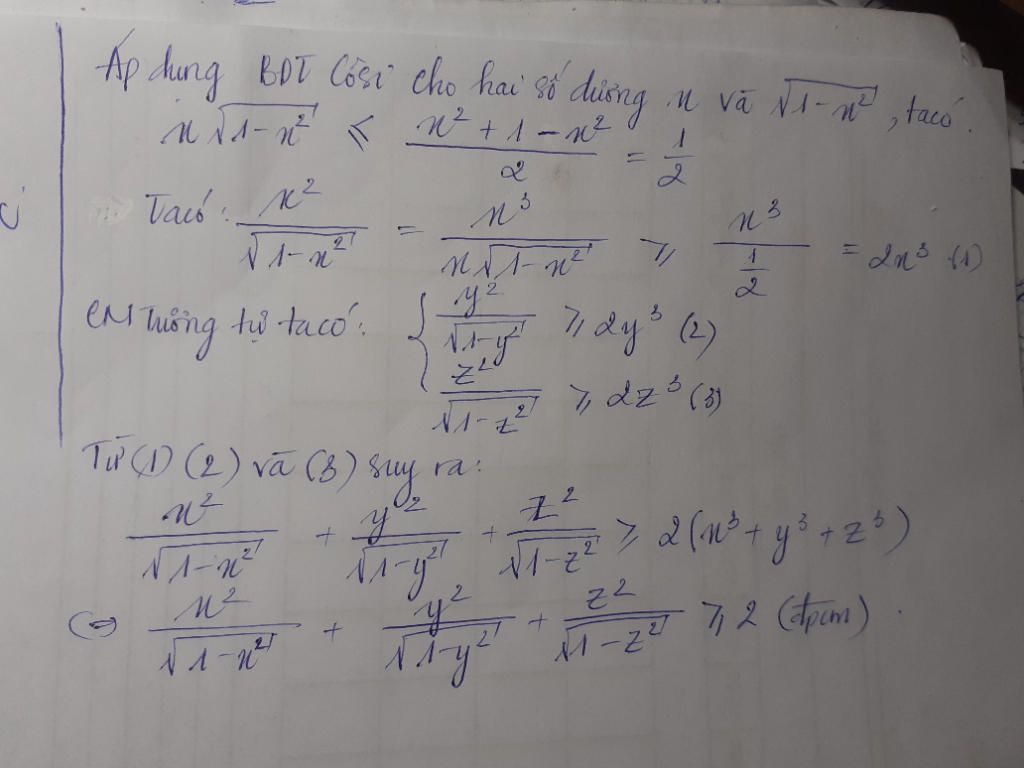 Áp dụng BĐT Côsi cho hai số dương x và √(1-x²), ta có.
x√(1-x²) ≤ (x²+1-x²)/2 = 1/2
Ta có: x²/√(1-x²) = x³/(x√(1-x²)) ≥ x³/(1/2) = 2x³ (1)
CM Tương tự ta có: { y²/√(1-y²) ≥ 2y³ (2)
z²/√(1-z²) ≥ 2z³ (3)
Từ (1) (2) và (3) suy ra:
x²/√(1-x²) + y²/√(1-y²) + z²/√(1-z²) ≥ 2(x³+y³+z³)
(=) x²/√(1-x²) + y²/√(1-y²) + z²/√(1-z²) ≥ 2 (đpcm).